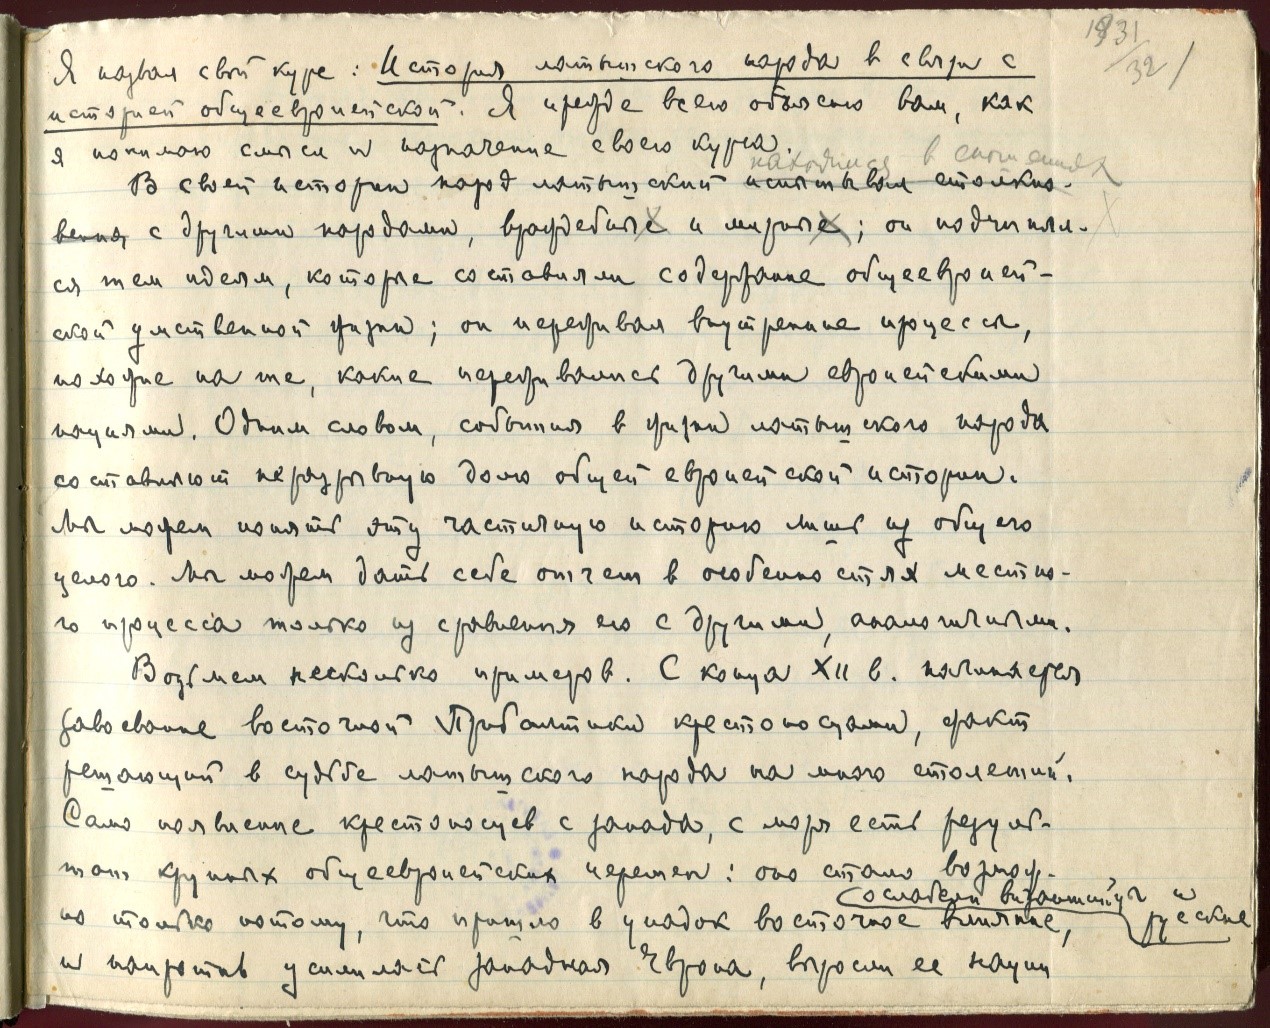 1931
/32 /
Я назвал свой курс: История латышского народа в связи с
историей общеевропейской. Я прежде всего объясню вам, как
я понимаю смысл и назначение своего курса.
находился в сношениях
В своей истории народ латышский испытывал столкно-
вения с другими народами, враждебные и мирные; он подчинял-
ся тем идеям, которые составляли содержание общеевропей-
ской умственной жизни; он переживал внутренние процессы,
похожие на те, какие переживались другими европейскими
нациями. Одним словом, события в жизни латышского народа
составляют неразрывную долю общей европейской истории.
Мы можем понять эту частичную историю лишь из общего
целого. Мы можем дать себе отчет в особенностях местно-
го процесса только из сравнения его с другими, аналогичными.
Возьмем несколько примеров. С конца XII в. начинается
завоевание восточной Прибалтики крестоносцами, факт
решающий в судьбе латышского народа на много столетий.
Само появление крестоносцев с запада, с моря есть резуль-
тат крупных общеевропейских перемен: оно стало возмож-
ослабели византийцы и
русские
но только потому, что пришло в упадок восточное влияние,
и напротив усилилась западная Европа, выросли ее нации